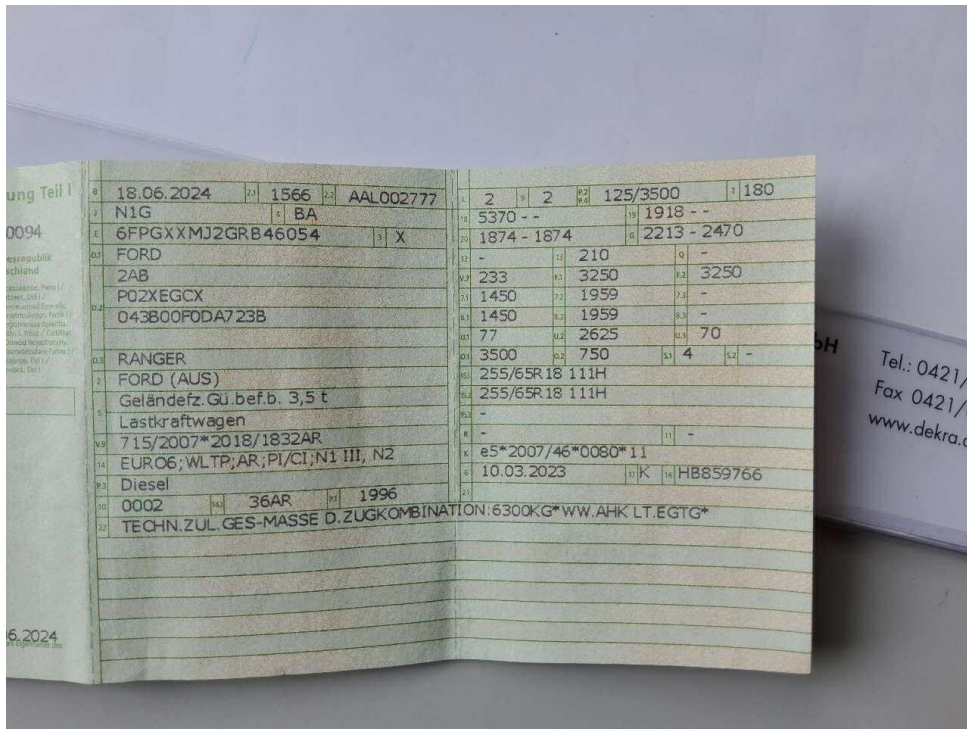 ung Teil I
0094
esrepublik
schland
06.2024
B 18.06.2024 2.1 1566 2.2 AAL002777
J N1G 4 BA
E 6FPGXXMJ2GRB46054 3 X
D.1 FORD
D.2 2AB
P02XEGCX
043B00F0DA723B
D.3 RANGER
2 FORD (AUS)
5 Geländefz.Gü.bef.b. 3,5 t
Lastkraftwagen
V.9 715/2007*2018/1832AR
14 EURO6;WLTP;AR;PI/CI;N1 III, N2
P.3 Diesel
10 0002 14.1 36AR P.1 1996
22 TECHN.ZUL.GES-MASSE D.ZUGKOMBINATION:6300KG*WW.AHK LT.EGTG*
L 2 9 2 P.2 P.4 125/3500 T 180
18 5370 - - 19 1918 - -
20 1874 - 1874 G 2213 - 2470
12 - 13 210 Q -
V.7 233 F.1 3250 F.2 3250
7.1 1450 7.2 1959 7.3 -
8.1 1450 8.2 1959 8.3 -
U.1 77 U.2 2625 U.3 70
O.1 3500 O.2 750 S.1 4 S.2 -
15.1 255/65R18 111H
15.2 255/65R18 111H
15.3 -
R - 11 -
K e5*2007/46*0080*11
6 10.03.2023 17 K 16 HB859766
21
bH
Tel.: 0421/
Fax 0421/
www.dekra.